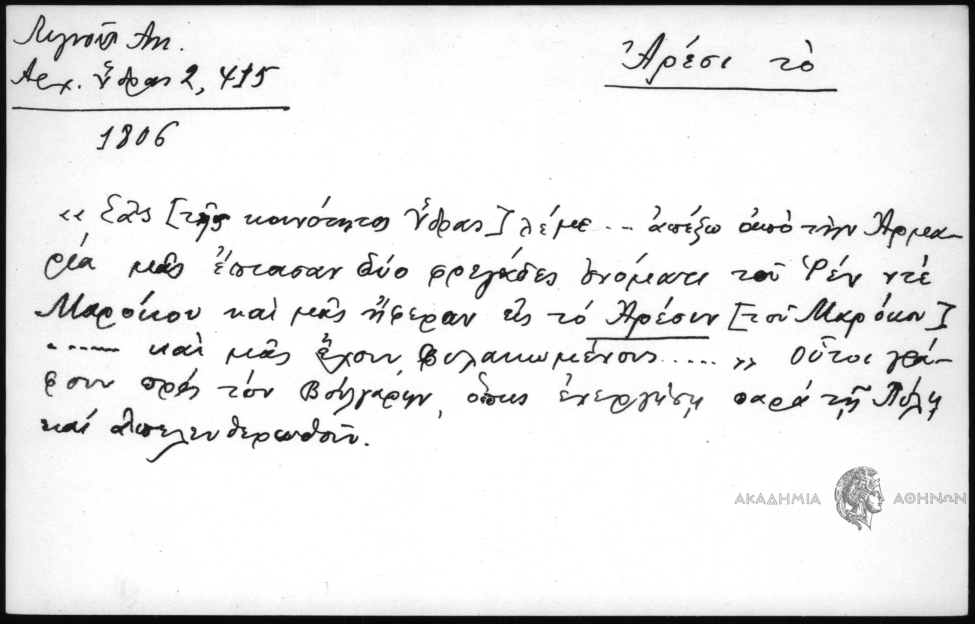 Λιγνοῦ Ἀν.
Ἀρχ. Ὕδρας 2, 415
1806
Ἀρέσι τὸ
«Σᾶς [τῆς κοινότητος Ὕδρας] λέμε... ἀπέξω ἀπὸ τὴν Ἀρμα-
ρία μᾶς ἔπιασαν δύο φρεγάδες ὀνόματι τοῦ Ρέν ντὲ
Μαρόκου καὶ μᾶς ἤφεραν εἰς τὸ Ἀρέσιν [τοῦ Μαρόκου]
...... καὶ μᾶς ἔχουν φυλακωμένους .....» Οὗτοι γρά-
φουν πρὸς τὸν Βούλγαρην, ὅπως ἐνεργήσῃ παρὰ τῇ Πύλῃ
καὶ ἀπελευθερωθοῦν.
ΑΚΑΔΗΜΙΑ ΑΘΗΝΩΝ